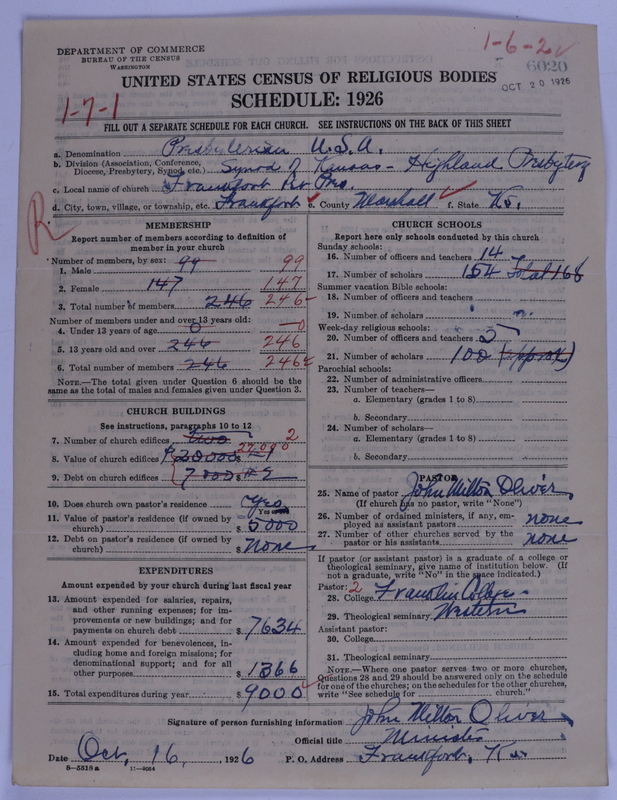 DEPARTMENT OF COMMERCE
BUREAU OF THE CENSUS
WASHINGTON
1-6-2
6020
OCT 20 1926
UNITED STATES CENSUS OF RELIGIOUS BODIES
1-7-1
SCHEDULE: 1926
FILL OUT A SEPARATE SCHEDULE FOR EACH CHURCH. SEE INSTRUCTIONS ON THE BACK OF THIS SHEET
a. Denomination Presbyterian U.S.A.
b. Division (Association, Conference, Diocese, Presbytery, Synod, etc.) Synod of Kansas - Highland Presbytery
c. Local name of church Frankfort 1st Pres.
d. City, town, village, or township, etc. Frankfort e. County Marshall f. State Ks.
R
MEMBERSHIP
Report number of members according to definition of
member in your church
Number of members, by sex:
1. Male 99 99
2. Female 147 147
3. Total number of members 246 246
Number of members under and over 13 years old:
4. Under 13 years of age 0 0
5. 13 years old and over 246 246
6. Total number of members 246 246
NOTE.—The total given under Question 6 should be the
same as the total of males and females given under Question 3.
CHURCH BUILDINGS
See instructions, paragraphs 10 to 12
7. Number of church edifices two 2
8. Value of church edifices $20000 #1 27000
9. Debt on church edifices 7000 #2
10. Does church own pastor's residence Yes
Yes
11. Value of pastor's residence (if owned by
church) $ 5000
12. Debt on pastor's residence (if owned by
church) $ None
EXPENDITURES
Amount expended by your church during last fiscal year
13. Amount expended for salaries, repairs,
and other running expenses; for im-
provements or new buildings; and for
payments on church debt $ 7634
14. Amount expended for benevolences, in-
cluding home and foreign missions; for
denominational support; and for all
other purposes $ 1366
15. Total expenditures during year $ 9000
CHURCH SCHOOLS
Report here only schools conducted by this church
Sunday schools:
16. Number of officers and teachers 14
17. Number of scholars 154 Total 168
Summer vacation Bible schools:
18. Number of officers and teachers
19. Number of scholars
Week-day religious schools:
20. Number of officers and teachers 5
21. Number of scholars 100 (approx)
Parochial schools:
22. Number of administrative officers
23. Number of teachers—
a. Elementary (grades 1 to 8)
b. Secondary
24. Number of scholars—
a. Elementary (grades 1 to 8)
b. Secondary
PASTOR
25. Name of pastor John Milton Oliver
(If church has no pastor, write "None")
26. Number of ordained ministers, if any, em-
ployed as assistant pastors none
27. Number of other churches served by the
pastor or his assistants none
If pastor (or assistant pastor) is a graduate of a college or
theological seminary, give name of institution below. (If
not a graduate, write "No" in the space indicated.)
Pastor: 2
28. College Franklin College
29. Theological seminary Western
Assistant pastor:
30. College
31. Theological seminary
NOTE.—Where one pastor serves two or more churches,
Questions 28 and 29 should be answered only on the schedule
for one of the churches; on the schedules for the other churches,
write "See schedule for church."
Signature of person furnishing information John Milton Oliver
Official title Minister
Date Oct. 16, 1926 P. O. Address Frankfort, Ks
8-5518a 11-9054